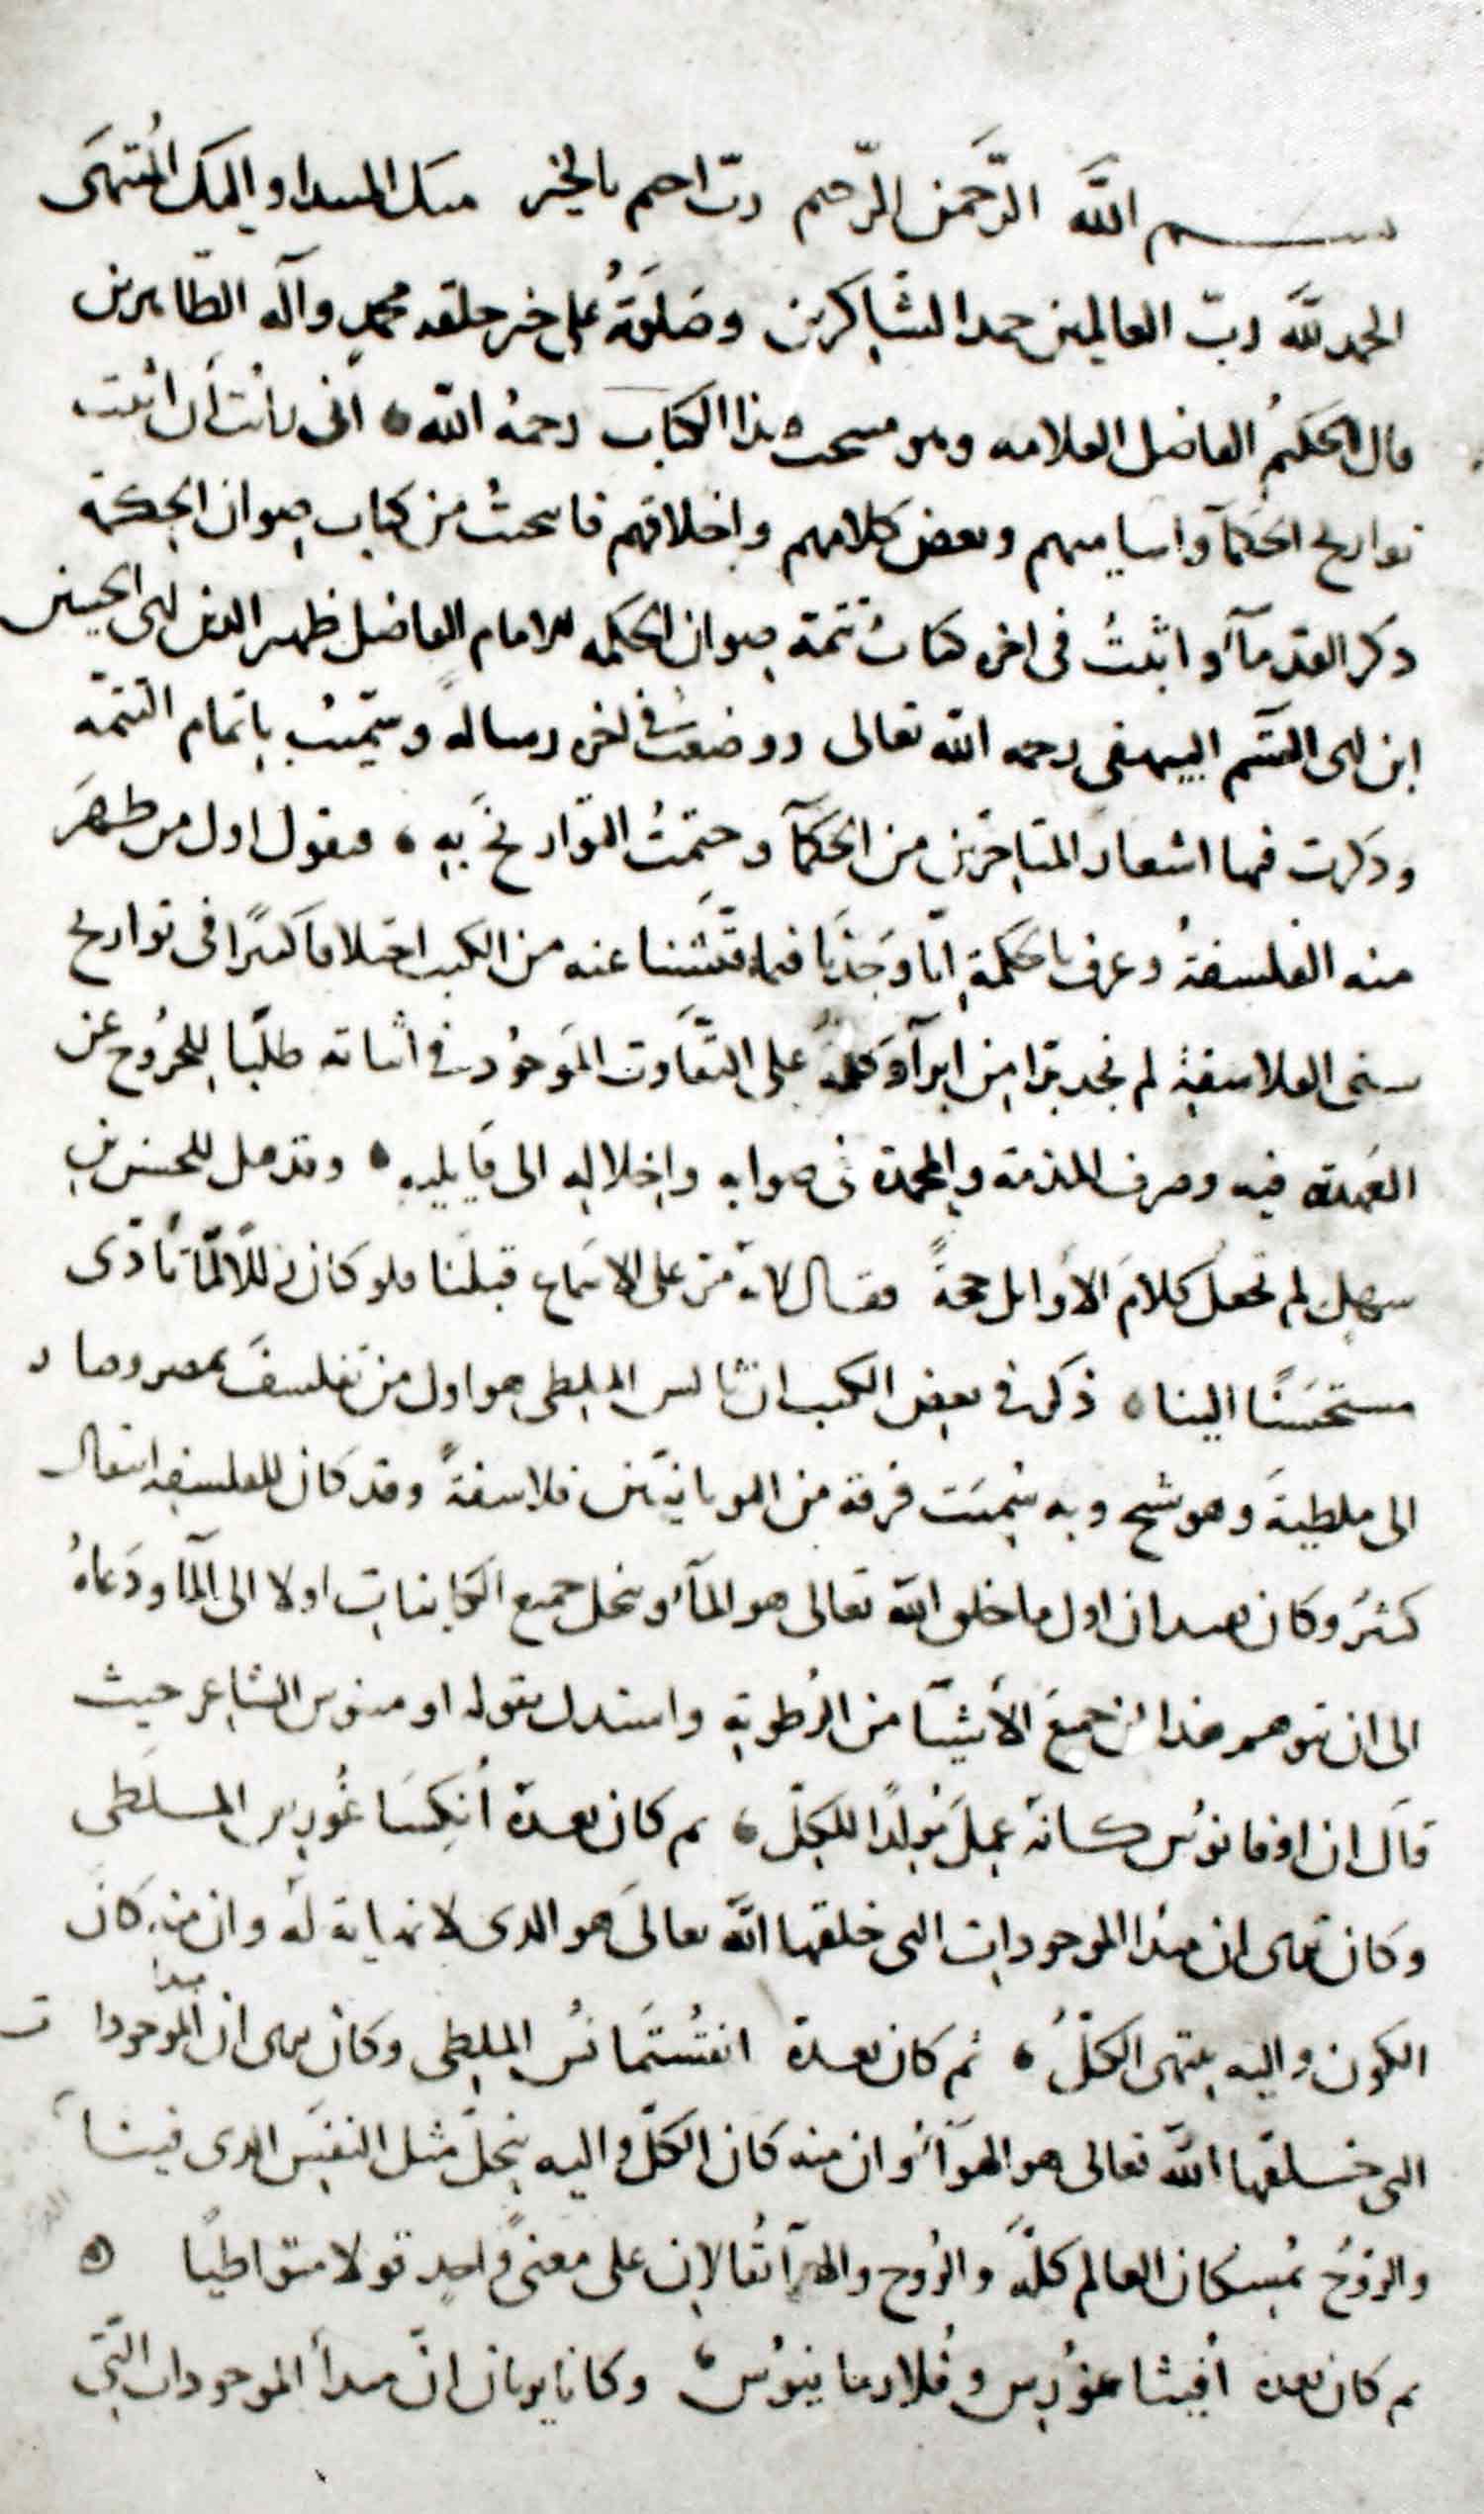 بسم الله الرَّحمن الرّحيم ربّ اختم بالخير منك المبدا و اليك المُنتهَى
الحمد للّه ربّ العالمين حمد الشاكرين وصَلوَتهُ على خير خلقه محمدٍ وآله الطّاهرين
قال الحكيمُ الفاضل العلامه وهو منتخب هذا الكتاب رحمهُ الله انى رأيت أن اثبت
تواريخ الحكمآ واساميهم وبعض كلامهم واخلاقهم فانتخبتُ من كتاب صوان الحِكمة
ذكر القدمآء واثبتُ فى اخره كتابُ تتمة صوان الحكمه للامام الفاضل ظهير الدين ابى الحسن
ابن ابى القسم البيهقى رحمه الله تعالى ووضعتُ فى اخره رساله وسمّيتُ باتمام التتمّه
وذكرت فيها اشعار المتاخّرين من الحكمآ وختمتُ التوّاريخ بهِ فنقول اول من ظهَرَ
منه الفلسفةُ وعرف بالحكمةِ انّا وَجَدْنا فيما فتّشنا عنه من الكتب اختلافا كثيرًا فى تواريخ
سنى الفلاسفة لم نجد بدّا من ايرآدَ كلّهُ على التّفاوت المَوجُود فى اثباته طلبًا للخرُوج عن
العُهدة فيه وصرف المذمة والمحمدة فى صوابه واخلاله الى قايليه وقد قيل للحسن بن
سهل لم تجعل كلامَ الأوايل حجةً فقال لانه مرّ على الاسماع قبلنا فلو كان زللًا لمّا تأدّى
مستحسَنًا الينا ذكر فى بعض الكتب ان ثالس الملطى هو اول من تفلسفَ بمصر وصار
الى ملطيةَ وهو شيخ وبه سُمّيَت فرقة من اليونانيّين فلاسفةً وقد كان للفلسفه انتقال
كثيرُ وكان ان اول ما خلق الله تعالى هو المآء وينحل جميع الكاينات اولا الى المآ ودَعاهُ
الى ان توهم هذا انّ جميعَ الأشيآ من الرُطوبةِ واستدل بقوله اوميروس الشاعر حيث
قال ان اوقانوُس كانه عملَ مُولدًا للكلّ ثم كان بعدهُ أنكِسَاغُورس الملطى
وكان يرى ان مبدا الموجودات التى خلقها الله تعالى هو الذى لا نهاية له وان منه كان
الكون واليه ينتهى الكلُّ ثم كان بعدهُ انقسُتَمانُس الملطى وكان يرى ان مبدا الموجودات
التى خلقها الله تعالى هو الهوآءُ وان منه كان الكلّ واليه ينحلّ مثل النفَس الذى فينا
والروُحُ يُمسكان العالم كلّهُ والرُوح والهوآ تُقالان على معنىً واحدٍ قولا متواطيًا
ثم كان بعده أنِيثاغوُرس وفُلارمانيوُس وكانا يريان انّ مبدأ الموجودات التّى